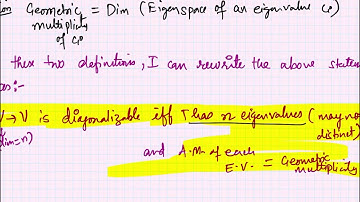 Geometric = Dim (Eigenspace of an eigenvalue
multiplicity
of
these two definitions, I can rewrite the above
as:-
V→V is diagonalizable iff T has n eigenvalues (may no
dim=n) distinct)
and A.M. of each
E.V. = Geometric
multiplicity